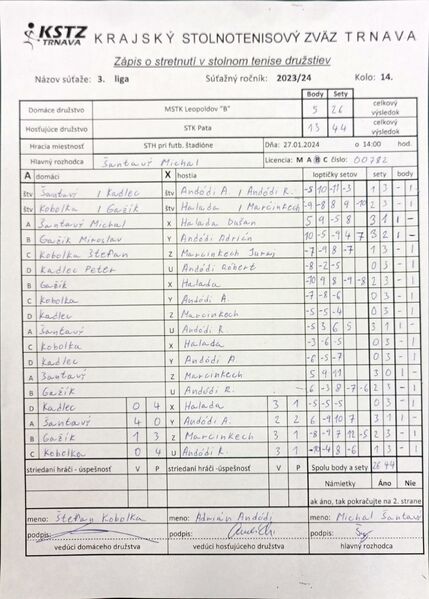 KSTZ TRNAVA KRAJSKÝ STOLNOTENISOVÝ ZVÄZ TRNAVA
Zápis o stretnutí v stolnom tenise družstiev
Názov súťaže: 3. liga Súťažný ročník: 2023/24 Kolo: 14.
Body Sety
Domáce družstvo MSTK Leopoldov "B" 5 26 celkový výsledok
Hosťujúce družstvo STK Pata 13 44 celkový výsledok
Hracia miestnosť STH pri futb. štadióne Dňa: 27.01.2024 o 14:00 hod.
Hlavný rozhodca Šantavý Michal Licencia: M A B C číslo: 00782
A domáci X hostia loptičky setov sety body
štv Šantavý / Kadlec štv Andódi A / Andódi R. -8 10 -11 -3 1 3 - 1
štv Kobolka / Gažik štv Halada / Marcinkech -9 -8 8 9 -10 2 3 - 1
A Šantavý Michal X Halada Dušan 5 9 -5 8 3 1 1 -
B Gažik Miroslav Y Andódi Adrián 10 -5 -9 4 7 3 2 1 -
C Kobolka Štefan Z Marcinkech -7 -9 8 -7 1 3 - 1
D Kadlec Peter U Andódi Róbert -8 -2 -5 0 3 - 1
B Gažik X Halada -10 9 8 -9 -8 2 3 - 1
C Kobolka Y Andódi A. -7 -8 -6 0 3 - 1
D Kadlec Z Marcinkech -5 -5 -4 0 3 - 1
A Šantavý U Andódi R. -5 3 6 5 3 1 1 -
C Kobolka X Halada -3 -6 -5 0 3 - 1
D Kadlec Y Andódi A. -6 -5 -7 0 3 - 1
A Šantavý Z Marcinkech 5 9 11 3 0 1 -
B Gažik U Andódi R. 6 -3 8 -7 -6 2 3 - 1
D Kadlec 0 4 X Halada 3 1 -5 -5 -5 0 3 - 1
A Šantavý 4 0 Y Andódi A. 2 2 6 -9 10 7 3 1 1 -
B Gažik 1 3 Z Marcinkech 3 1 -8 -9 7 12 -5 2 3 - 1
C Kobolka 0 4 U Andódi R. 3 1 -10 -4 8 -6 1 3 - 1
striedaní hráči - úspešnosť V P striedaní hráči - úspešnosť V P Spolu body a sety 26 44
Námietky Áno Nie
ak áno, tak pokračujte na 2. strane
meno: Štefan Kobolka meno: Adrián Andódi meno: Michal Šantavý
podpis: podpis: podpis:
vedúci domáceho družstva vedúci hosťujúceho družstva hlavný rozhodca